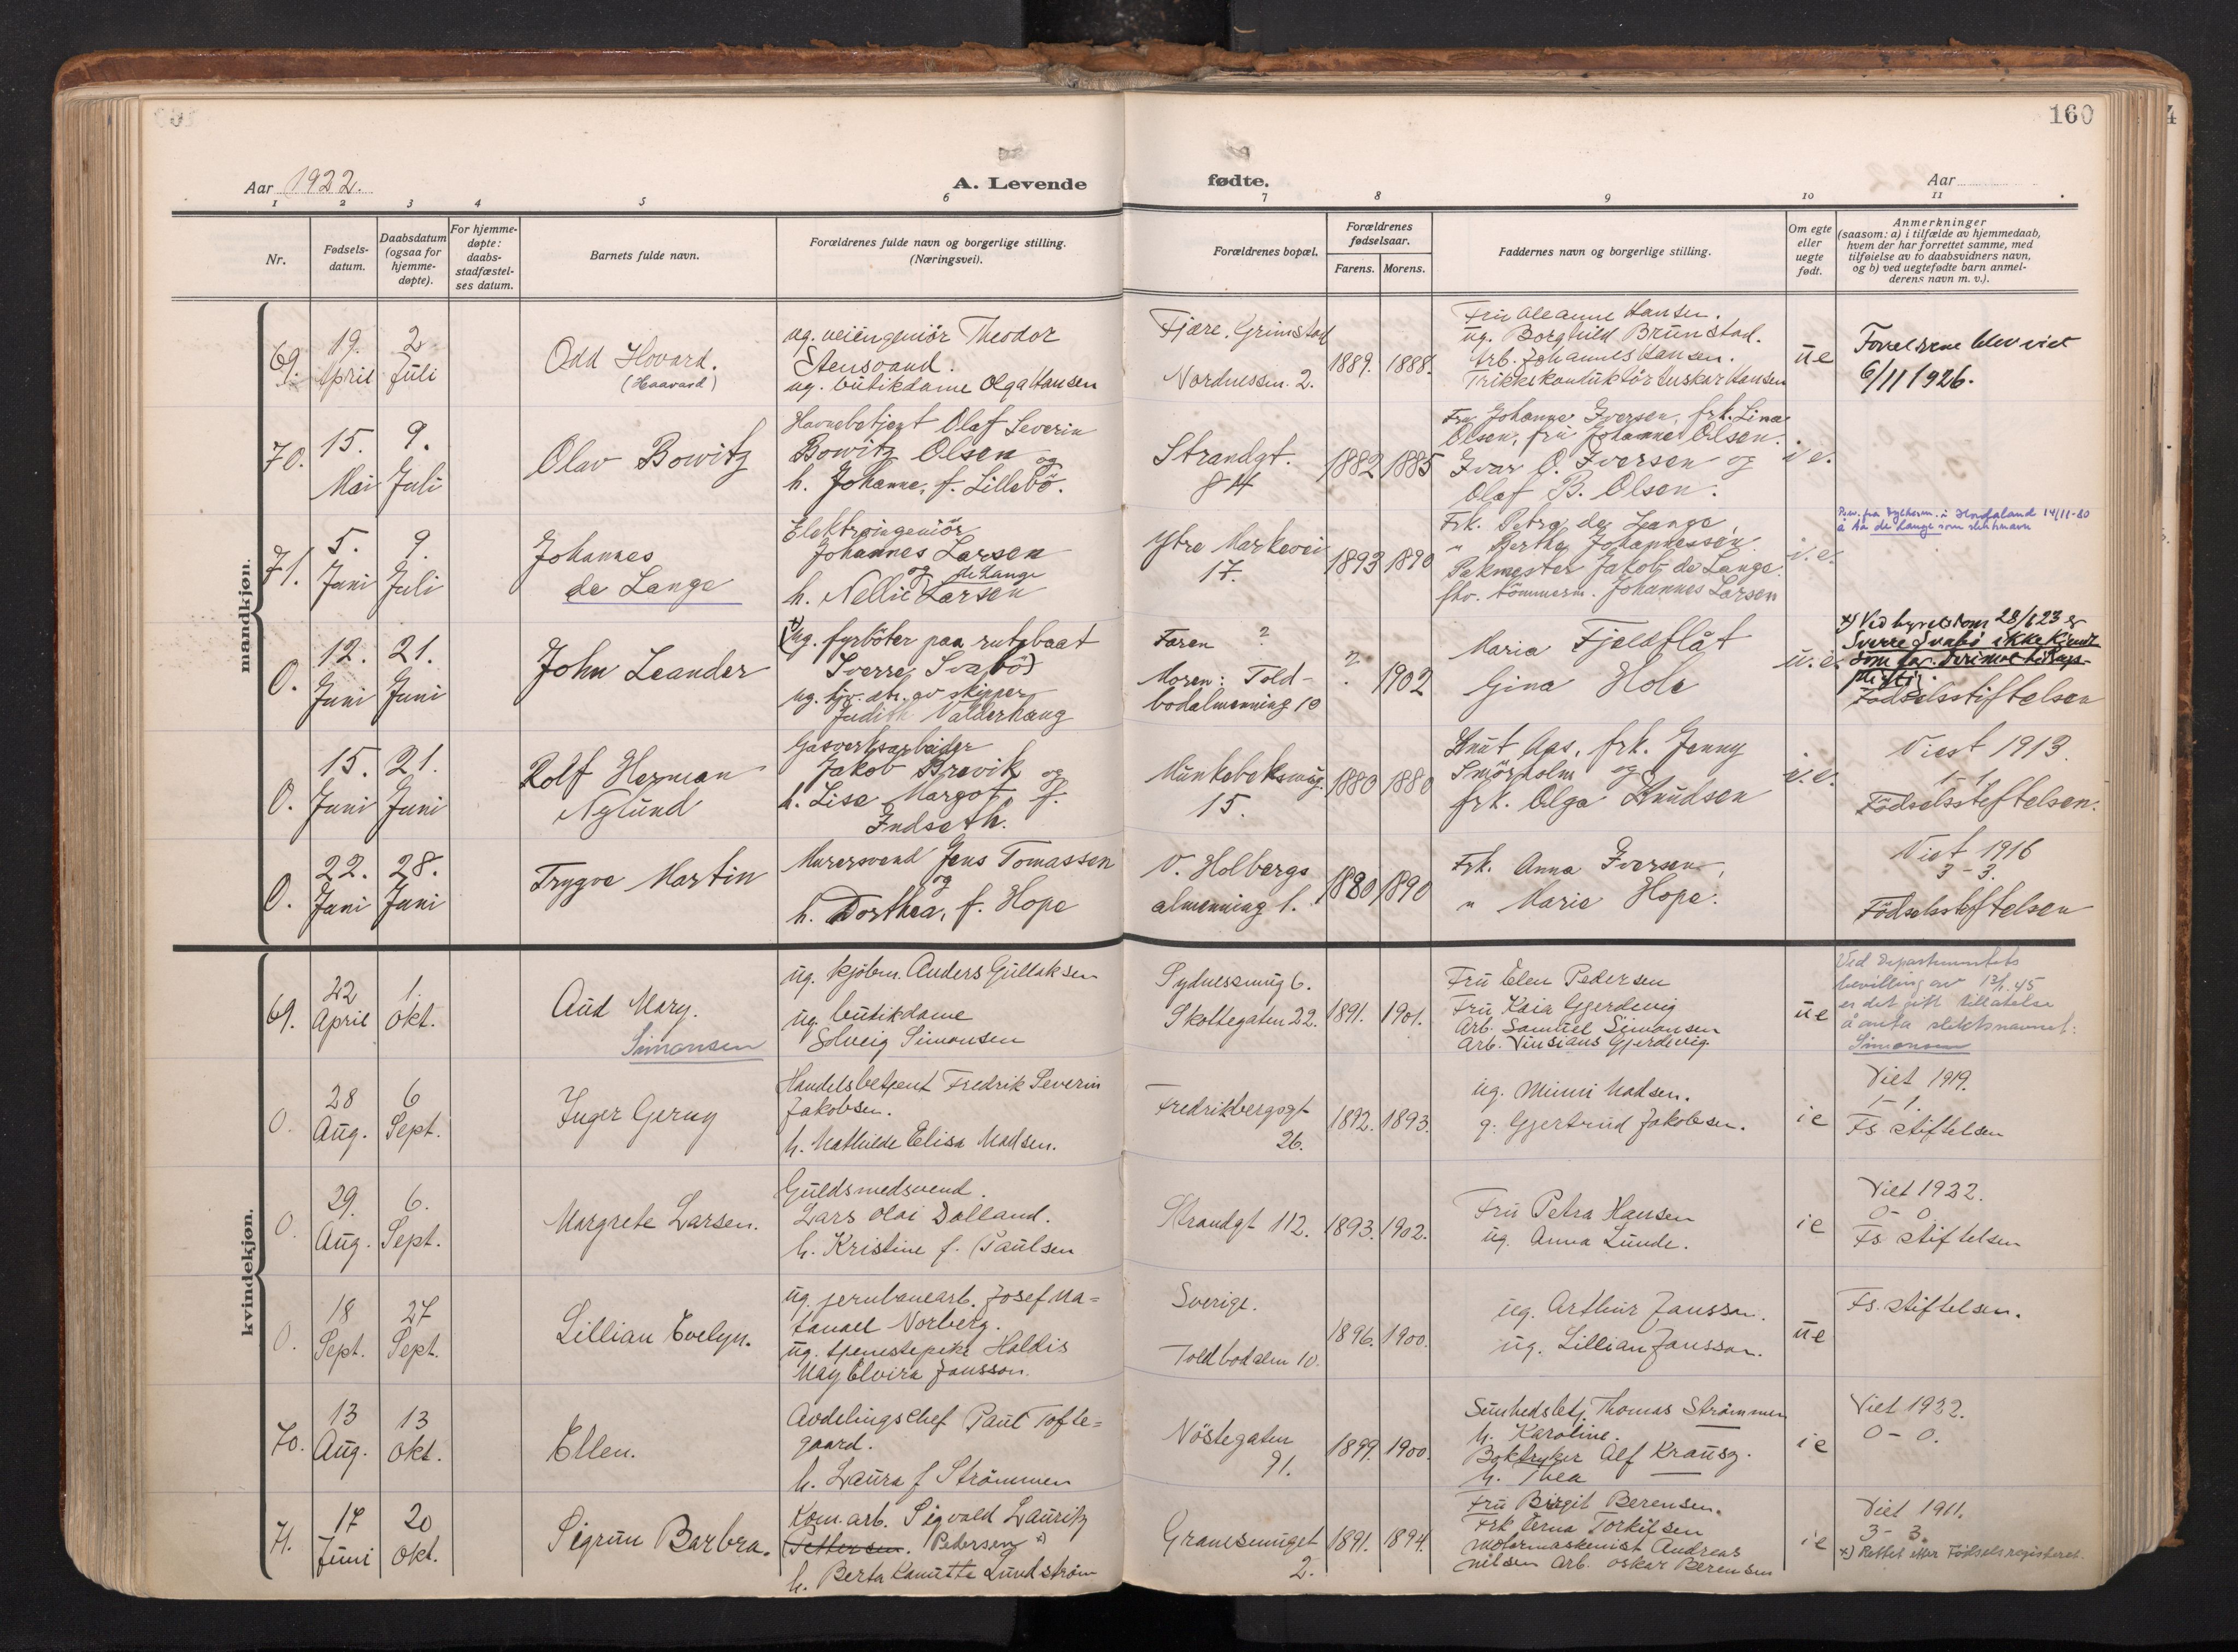 160
Aar 1922.
A. Levende fødte.
Aar
1 2 3 4 5 6 7 8 9 10 11
Nr.
Fødsels-
datum.
Daabsdatum
(ogsaa for
hjemme-
døpte).
For hjemme-
døpte:
daabs-
stadfæstel-
ses datum.
Barnets fulde navn.
Forældrenes fulde navn og borgerlige stilling.
(Næringsvei).
Forældrenes bopæl.
Forældrenes
fødselsaar.
Farens. Morens.
Faddernes navn og borgerlige stilling.
Om egte
eller
uegte
født.
Anmerkninger
(saasom: a) i tilfælde av hjemmedaab,
hvem der har forrettet samme, med
tilføielse av to daabsvidners navn,
og b) ved uegtefødte barn anmel-
derens navn m. v.).
mandkjøn.
69.
19. April
2 Juli
Odd Hovard.
(Haavard)
ug. veiingeniör Theodor
Stensvand.
ug. butikdame Olga Hansen
Fjære, Grimstad
Nordnessm. 2.
1889. 1888.
Fru Aleanne Hansen.
ug. Borghild Brunstad.
Arb. Johannes Hansen.
Trikkekonduktör Hansen
ue
Forældrene blev viet
6/11 1926.
70.
15. Mai
9. Juli
Olav Bowitz
Havnebetjent Olaf Severin
Bowitz Olsen og
h. Johanne, f. Lillebö.
Strandgt.
84
1882 1885
Fru Johanne Iversen, frk. Lina
Olsen, fru Johanne Olsen.
Ivar O. Iversen og
Olaf B. Olsen.
i e.
71.
5. Juni
9. Juli
Johannes
de Lange
Elektroingeniör
Johannes Larsen
og de Lange
h. Nellie Larsen
Ytre Markevei
17.
1893 1890
Frk. Petra de Lange,
" Bertha Johannessen.
Pakmester Jakob de Lange.
fhv. tömmerm. Johannes Larsen
i.e.
Bev. fra Fylkesm. i Hordaland 14/11-80
å ta de Lange som slektsnavn
0.
12. Juni
21. Juni
John Leander
x)
(Ug. fyrböter paa rutebaat
Sverre Svabö)
ug. tjv. dtr. av skipper
Judith Valderhaug
Faren ?
Moren: Told-
bodalmenning 10
? 1902
Maria Fjeldflåt
Gina Hole
u.e.
x) Ved byretsdom 28/6 23 er
Sverre Svabö ikke kjendt
som far. Derimot bidrags-
pligtig.
Födselsstiftelsen
0.
15. Juni
21. Juni
Rolf Herman
Nylund
Gasverksarbeider
Jakob Brevik og
h. Lise Margot, f.
Indseth.
Munkebeksmug.
15.
1880 1880
Knut Aas, frk. Jenny
Smörholm og
frk. Olga Knudsen
i.e.
Viest 1913.
1-1
Födselsstiftelsen.
0.
22. Juni
28. Juni
Trygve Martin
Murersvend Jens Tomassen
og
h. Dorthea, f. Hope
V. Holbergs
almenning 1.
1880 1890
Frk. Anna Iversen,
" Marie Hope.
Viet 1916
3-3.
Födselsstiftelsen
kvindekjøn.
69.
22 April
1. Okt.
Aud Mary.
Simonsen
ug. kjöbm. Anders Gullaksen
ug. butikdame
Solveig Simonsen
Sydnessmug 6.
Skottegaten 22.
1891. 1901.
Fru Elen Pedersen
Fru Kaia Gjerdevig
Arb. Samuel Simonsen
Arb. Vinsians Gjerdevig.
ue
Ved Departementets
bevilling av 12/1. 45
er det gitt tillatelse
å anta slektsnavnet:
Simonsen
0.
28 Aug.
6 Sept.
Inger Gerny
Handelsbetjent Fredrik Severin
Jakobsen.
h. Mathilde Elisa Madsen.
Fredrikbergsgt
26.
1892. 1893.
ug. Minni Madsen.
g. Gjertrud Jakobsen.
ie
Viet 1919.
1-1.
Fs. stiftelsen
0.
29. Aug.
6. Sept.
Margrete Larsen.
Guldsmedsvend.
Lars Olai Dalland.
h. Kristine f. Paulsen
Strandgt 112.
1893. 1902.
Fru Petra Hansen
ug. Anna Lunde.
ie
Viet 1922.
0-0
Fs stiftelsen
0.
18 Sept.
27 Sept.
Lillian Evelyn.
ug. jernbanearb. Josef Na=
tanael Norberg.
ug. tjenestepike Haldis
May Elvira Jansson.
Sverige.
Toldbodalm 10.
1896. 1900.
ug. Arthur Jansson.
ug. Lillian Jansson.
ue
Fs. stiftelsen.
70.
13 Aug.
13 Okt.
Ellen.
Avdelingschef Paul Tofte=
gaard.
h. Laura f Strömmen
Nöstegaten
91.
1899. 1900.
Sunhedsbetj. Thomas Strömmen
h. Karoline.
Boktryker Alf Krausz.
h. Thea
ie
Viet 1922.
0-0.
71.
17 Juni
20 Okt.
Sigrun Barbra.
Kom. arb. Sigvald Lauritz
(Pettersen. Pedersen x)
h. Berta Kanutta Lundström
Granesmuget
2.
1891. 1894.
Fru Birgit Berensen.
Frk Erna Torkilsen
Motormaskenist Andreas
Nilsen Arb. Oskar Berensen
ie
Viet 1911.
3-3.
x) Rettet etter Födselsregisteret.